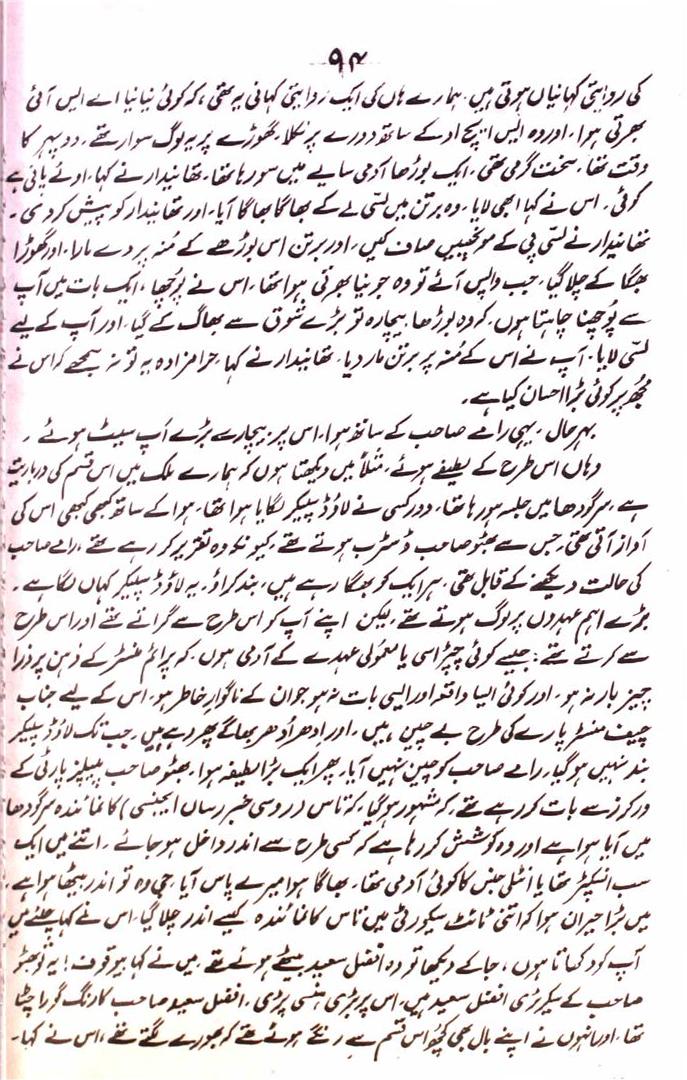 ۹۴
کی روایتی کہانیاں ہوتی ہیں۔ ہمارے ہاں کی ایک روایتی کہانی یہ تھی، کہ کوئی نیا نیا اے ایس آئی
بھرتی ہوا۔ اور وہ ایس ایچ او کے ساتھ دورے پر نکلا۔ گھوڑے پر یہ لوگ سوار تھے۔ دوپہر کا
وقت تھا۔ سخت گرمی تھی۔ ایک بوڑھا آدمی سایے میں سو رہا تھا۔ تھانیدار نے کہا۔ اوئے پانی ہے
کوئی۔ اس نے کہا ابھی لایا۔ وہ برتن میں لسّی لے کے بھاگا بھاگا آیا۔ اور تھانیدار کو پیش کر دی۔
تھانیدار نے لسّی پی کے مونچھیں صاف کیں۔ اور برتن اس بوڑھے کے مُنہ پر دے مارا۔ اور گھوڑا
بھگا کے چلا گیا۔ جب واپس آئے تو وہ جو نیا بھرتی ہوا تھا۔ اس نے پُوچھا، ایک بات میں آپ
سے پُوچھنا چاہتا ہوں۔ کہ وہ بوڑھا بیچارہ تو بڑے شوق سے بھاگ کے گیا۔ اور آپ کے لیے
لسّی لایا۔ آپ نے اس کے مُنہ پر برتن مار دیا۔ تھانیدار نے کہا۔ حرامزادہ یہ تو نہ سمجھے کہ اس نے
مجھ پر کوئی بڑا احسان کیا ہے۔
بہرحال۔ یہی رامے صاحب کے ساتھ ہوا۔ اس پر بیچارے بڑے اَپ سیٹ ہوئے۔
وہاں اس طرح کے لطیفے ہوئے۔ مثلاً میں دیکھتا ہوں کہ ہمارے ملک میں اس قسم کی درباریت
ہے۔ سرگودھا میں جلسہ ہو رہا تھا۔ دور کسی نے لاؤڈ سپیکر لگایا ہوا تھا۔ ہوا کے ساتھ کبھی کبھی اس کی
آواز آتی تھی۔ جس سے بھٹو صاحب ڈسٹرب ہوتے تھے۔ کیونکہ وہ تقریر کر رہے تھے۔ رامے صاحب
کی حالت دیکھنے کے قابل تھی۔ ہر ایک کو بھگا رہے ہیں، بند کراؤ۔ یہ لاؤڈ سپیکر کہاں لگا ہے۔
بڑے اہم عہدوں پر لوگ ہوتے تھے۔ لیکن اپنے آپ کو اس طرح سے گراتے تھے اور اس طرح
سے کرتے تھے: جیسے کوئی چپڑاسی یا معمولی عہدے کے آدمی ہوں۔ کہ پرائم منسٹر کے ذہن پر ذرا
چیز بار نہ ہو۔ اور کوئی ایسا واقعہ اور ایسی بات نہ ہو جو ان کے ناگوارِ خاطر ہو۔ اس کے لیے جناب
چیف منسٹر پارے کی طرح بے چین ہیں۔ اور ادھر اُدھر بھاگے پھر رہے ہیں۔ جب تک لاؤڈ سپیکر
بند نہیں ہو گیا۔ رامے صاحب کو چین نہیں آیا۔ پھر ایک بڑا لطیفہ ہوا۔ بھٹو صاحب پیپلز پارٹی کے
ورکرز سے بات کر رہے تھے۔ کہ مشہور ہو گیا، کہ تاس (روسی خبر رساں ایجنسی) کا نمائندہ سرگودھا
میں آیا ہوا ہے اور وہ کوشش کر رہا ہے کہ کسی طرح سے اندر داخل ہو جائے۔ اتنے میں ایک
سب انسپکٹر تھا یا انٹلی جنس کا کوئی آدمی تھا۔ بھاگا ہوا میرے پاس آیا۔ جی وہ تو اندر بیٹھا ہوا ہے۔
میں بڑا حیران ہوا کہ اتنی ٹائٹ سیکورٹی میں تاس کا نمائندہ کیسے اندر چلا گیا۔ اس نے کہا چلئے میں
آپ کو دکھاتا ہوں، جا کے دیکھا تو وہ افضل سعید بیٹھے ہوئے تھے۔ میں نے کہا بیوقوف! یہ تو بھٹو
صاحب کے سیکرٹری افضل سعید ہیں۔ اس پر بڑی ہنسی پڑی۔ افضل سعید صاحب کا رنگ گورا چٹا
تھا۔ اور انہوں نے اپنے بال بھی کچھ اس قسم سے رنگے ہوئے تھے کہ بھورے لگتے تھے، اس نے کہا۔